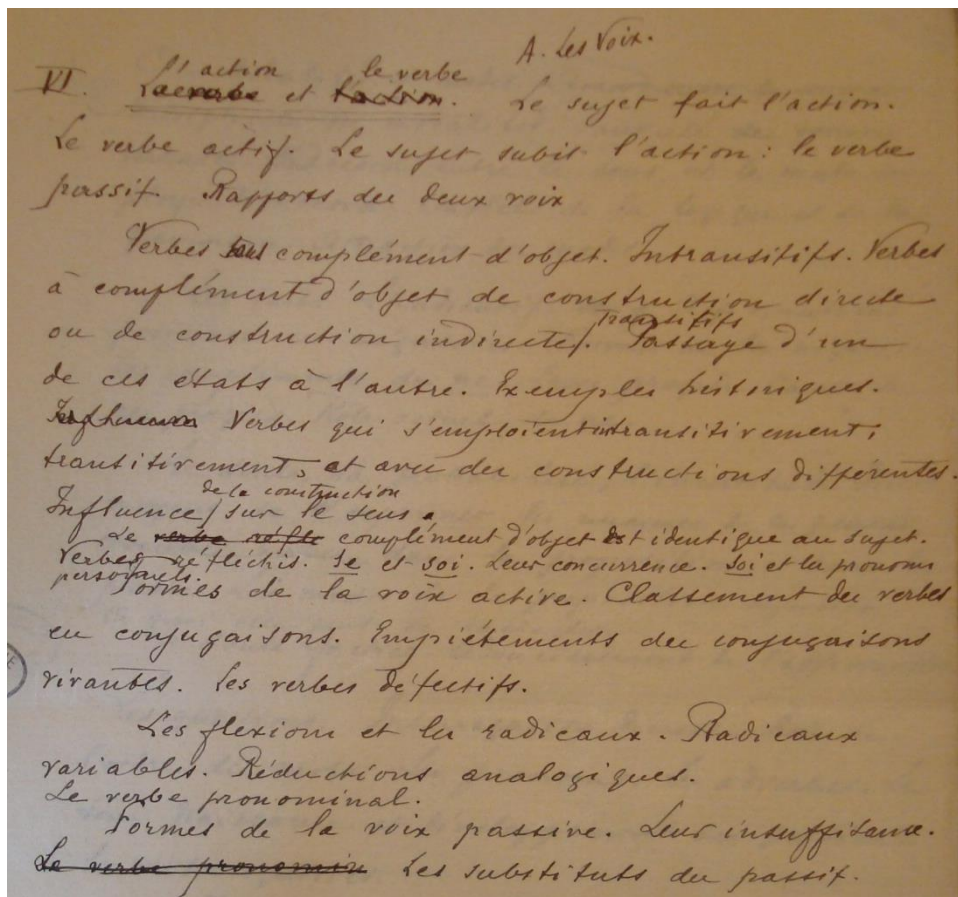 A. Les Voix.
l'action le verbe
VI. Le verbe et l'action. Le sujet fait l'action.
Le verbe actif. Le sujet subit l'action : le verbe
passif. Rapports des deux voix
Verbes sans complément d'objet. Intransitifs. Verbes
à complément d'objet de construction directe
transitifs
ou de construction indirecte/. Passage d'un
de ces états à l'autre. Exemples historiques.
Influence Verbes qui s'emploient intransitivement,
transitivement, et avec des constructions différentes.
de la construction
Influence / sur le sens.
Le verbe réfle complément d'objet est identique au sujet.
Verbes réfléchis. Se et soi. Leur concurrence. Soi et les pronoms
personnels.
Formes de la voix active. Classement des verbes
en conjugaisons. Empiétements des conjugaisons
vivantes. Les verbes défectifs.
Les flexions et les radicaux. Radicaux
variables. Réductions analogiques.
Le verbe pronominal.
Formes de la voix passive. Leur insuffisance.
Le verbe pronomin Les substituts du passif.